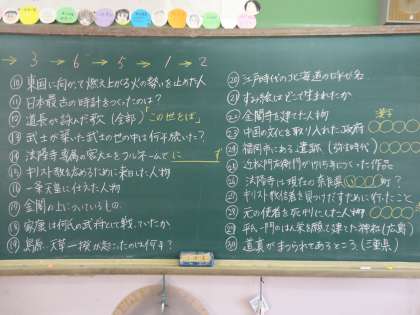 → 3 → 6 → 5 → 1 → 2
⑩ 東国に向かって燃え上がる火の勢いを止めた人
⑪ 日本最古の時計をつくったのは?
⑫ 道長が詠んだ歌(全部)「この世をば」
⑬ 武士が築いた武士の世の中は何年続いた?
⑭ 法隆寺専属の宮大工をフルネームで に ず
⑮ キリスト教を広めるために来日した人物
⑯ 一条天皇に仕えた人物
⑰ 金閣の上についているもの
⑱ 家康は何氏の武将として戦っていたか
⑲ 島原・天草一揆が起こったのは何年?
⑳ 江戸時代の北海道の呼び名
㉑ すみ絵はどこで生まれたか
㉒ 金閣寺を建てた人物
漢字
㉓ 中国の文化を取り入れた政府 〇〇〇〇
㉔ 福岡市にある遺跡(弥生時代)
㉕ 近松門左衛門が力を入れてつくった作品
㉖ 法隆寺は現在の奈良県〇〇〇町?
㉗ キリスト教信者を見つけだすために行なったこと
㉘ 元の使者を死刑にした人物 〇〇〇〇
㉙ 平氏一門のはん栄を願って建てた神社(広島)
㉚ 道真がまつられてあるところ(三重県)